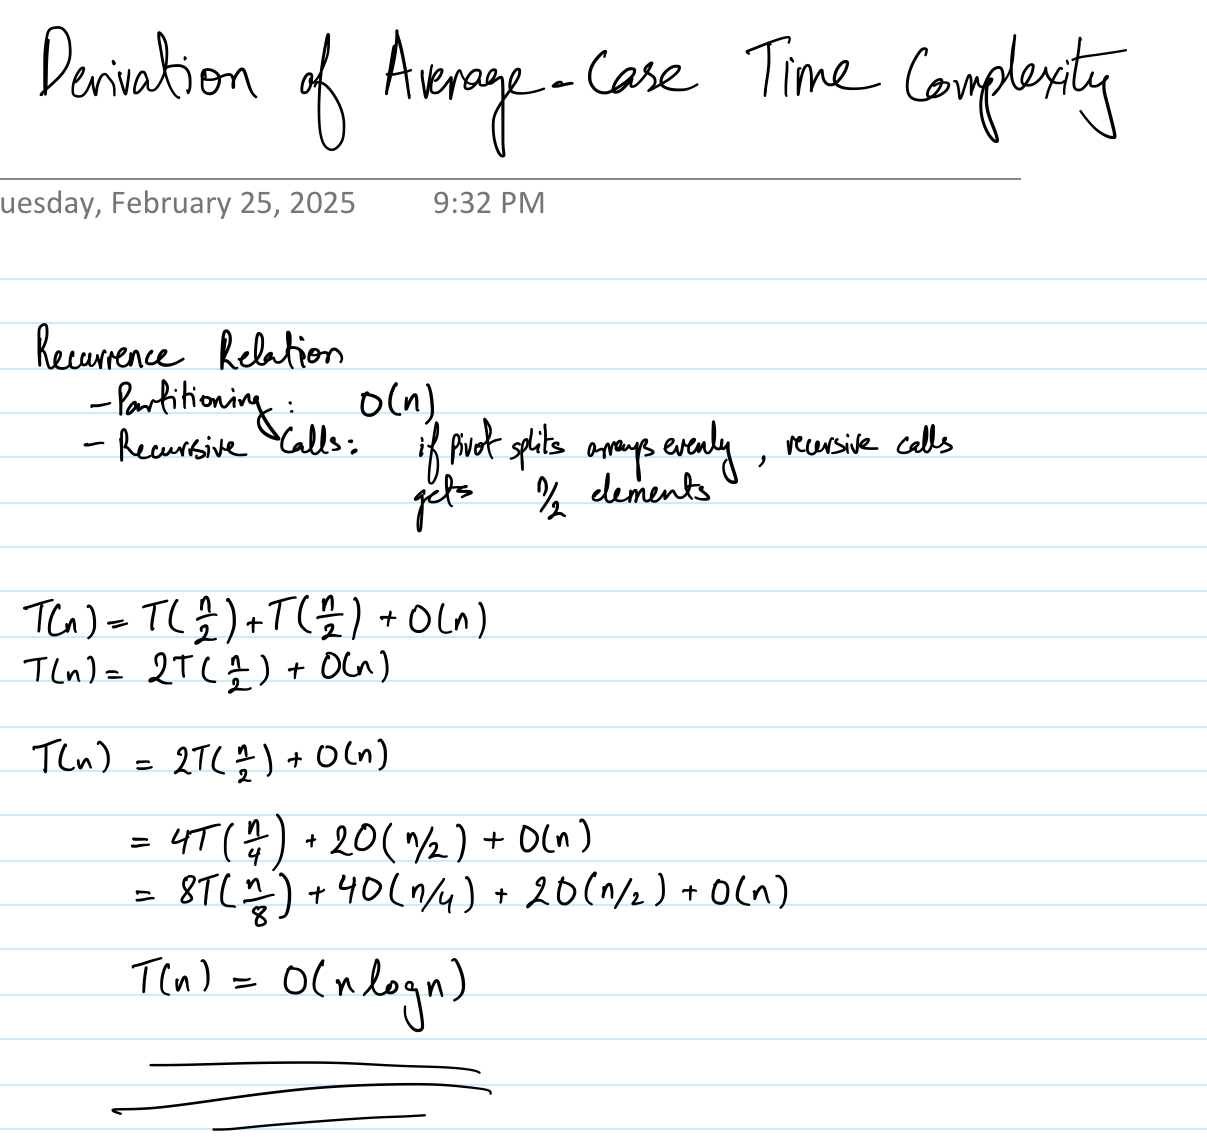 Derivation of Average-Case Time Complexity
uesday, February 25, 2025 9:32 PM
Recurrence Relation
- Partitioning: O(n)
- Recursive Calls: if pivot splits arrays evenly, recursive calls
gets n/2 elements
T(n) = T(n/2) + T(n/2) + O(n)
T(n) = 2T(n/2) + O(n)
T(n) = 2T(n/2) + O(n)
= 4T(n/4) + 2O(n/2) + O(n)
= 8T(n/8) + 4O(n/4) + 2O(n/2) + O(n)
T(n) = O(n log n)